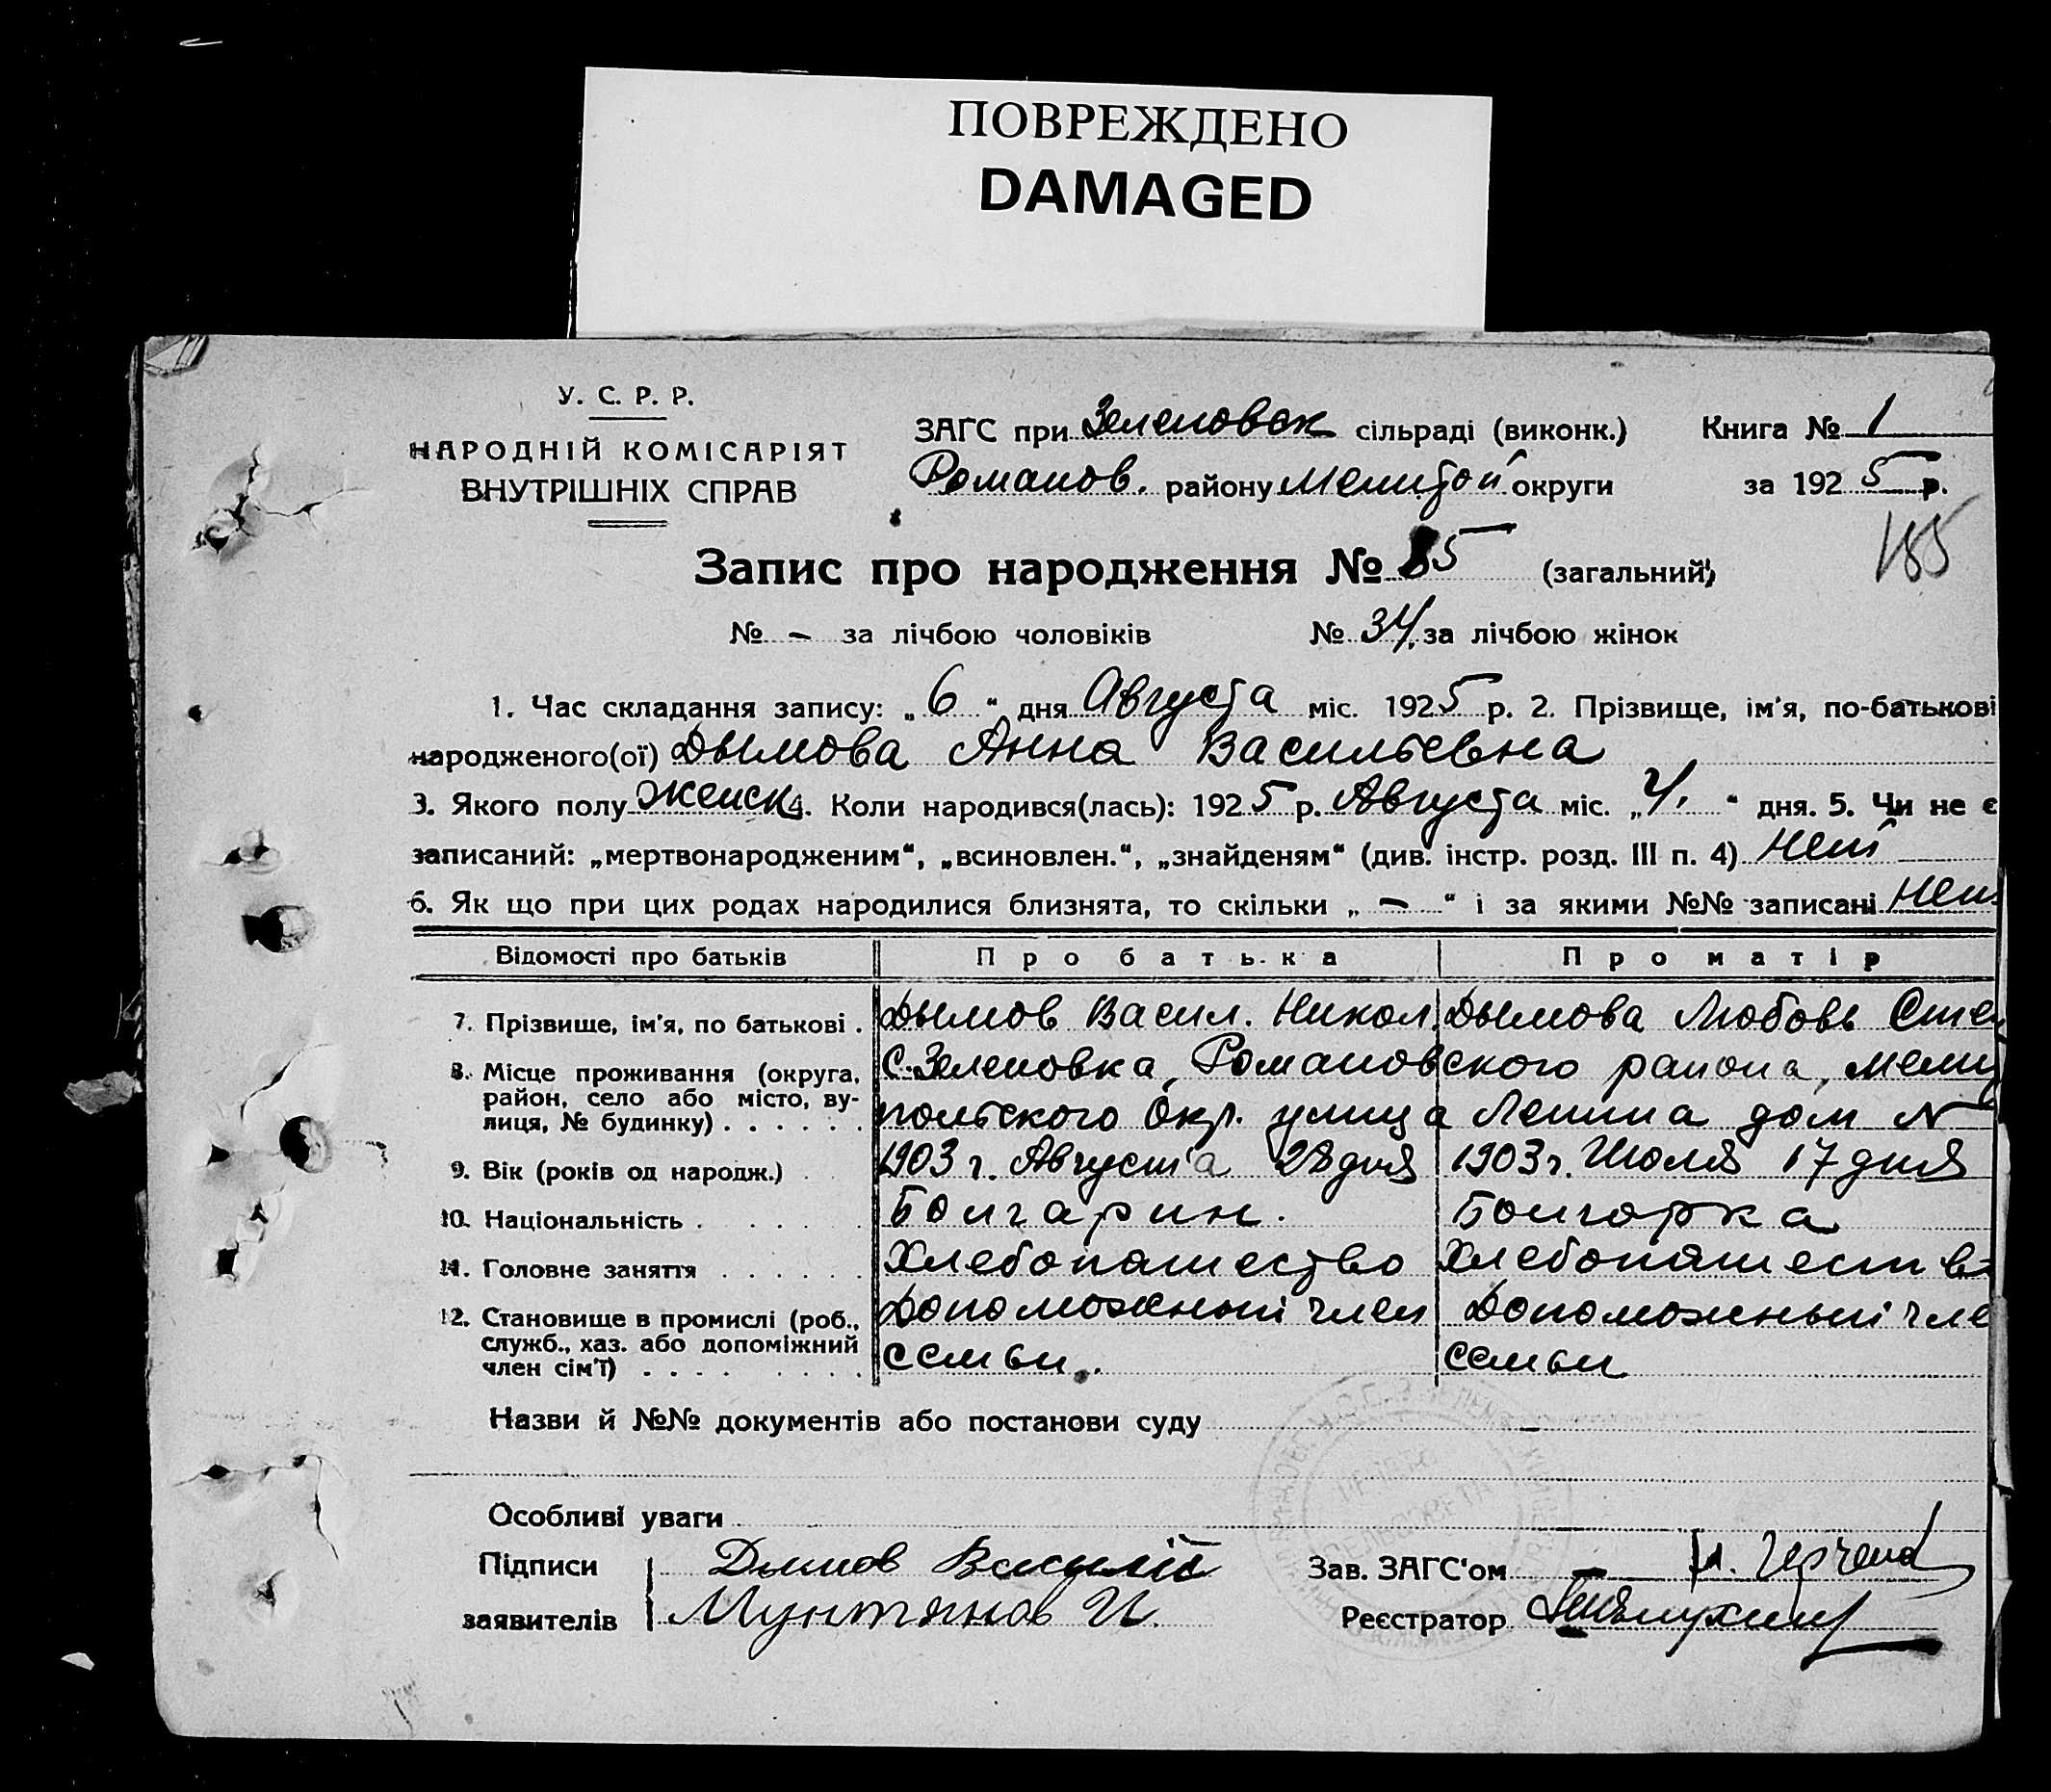 ПОВРЕЖДЕНО
DAMAGED
У. С. Р. Р.
НАРОДНІЙ КОМІСАРІЯТ
ВНУТРІШНІХ СПРАВ
ЗАГС при Зеленовск сільраді (виконк.) Книга № 1
Романов. району Мелитой округи за 1925 р.
185
Запис про народження № 85 (загальний)
№ – за лічбою чоловіків № 34. за лічбою жінок
1. Час складання запису: „6“ дня Августа міс. 1925 р. 2. Прізвище, ім'я, по-батькові
народженого(ої) Дымова Анна Васильевна
3. Якого полу Женск 4. Коли народився(лась): 1925 р. Августа міс. „4.“ дня. 5. Чи не є
записаний: „мертвонародженим“, „всиновлен.“, „знайденям“ (див. інстр. розд. III п. 4) Нет
6. Як що при цих родах народилися близнята, то скільки „–“ і за якими №№ записані Нет
Відомості про батьків Про батька Про матір
7. Прізвище, ім'я, по батькові . Дымов Васил. Никол. Дымова Любовь Степ
8. Місце проживання (округа, С. Зеленовка, Романовского района, Мели
район, село або місто, ву-
лиця, № будинку) . . . . . . польского Окр. улица Ленина дом N
9. Вік (років од народж.) . 1903 г. Августа 28 дня 1903 г. Июля 17 дня
10. Національність . . . . . Болгарин. Болгорка
11. Головне заняття . . . . . . Хлебопашество Хлебопашеств
12. Становище в промислі (роб., Допоможеный член Допоможный чле
служб., хаз. або допоміжний семьи. семьи
член сім'ї) . . . . . . . .
Назви й №№ документів або постанови суду –
Особливі уваги
Підписи Дымов Василій Зав. ЗАГС'ом –
заявителів Мунтянов И. Реєстратор